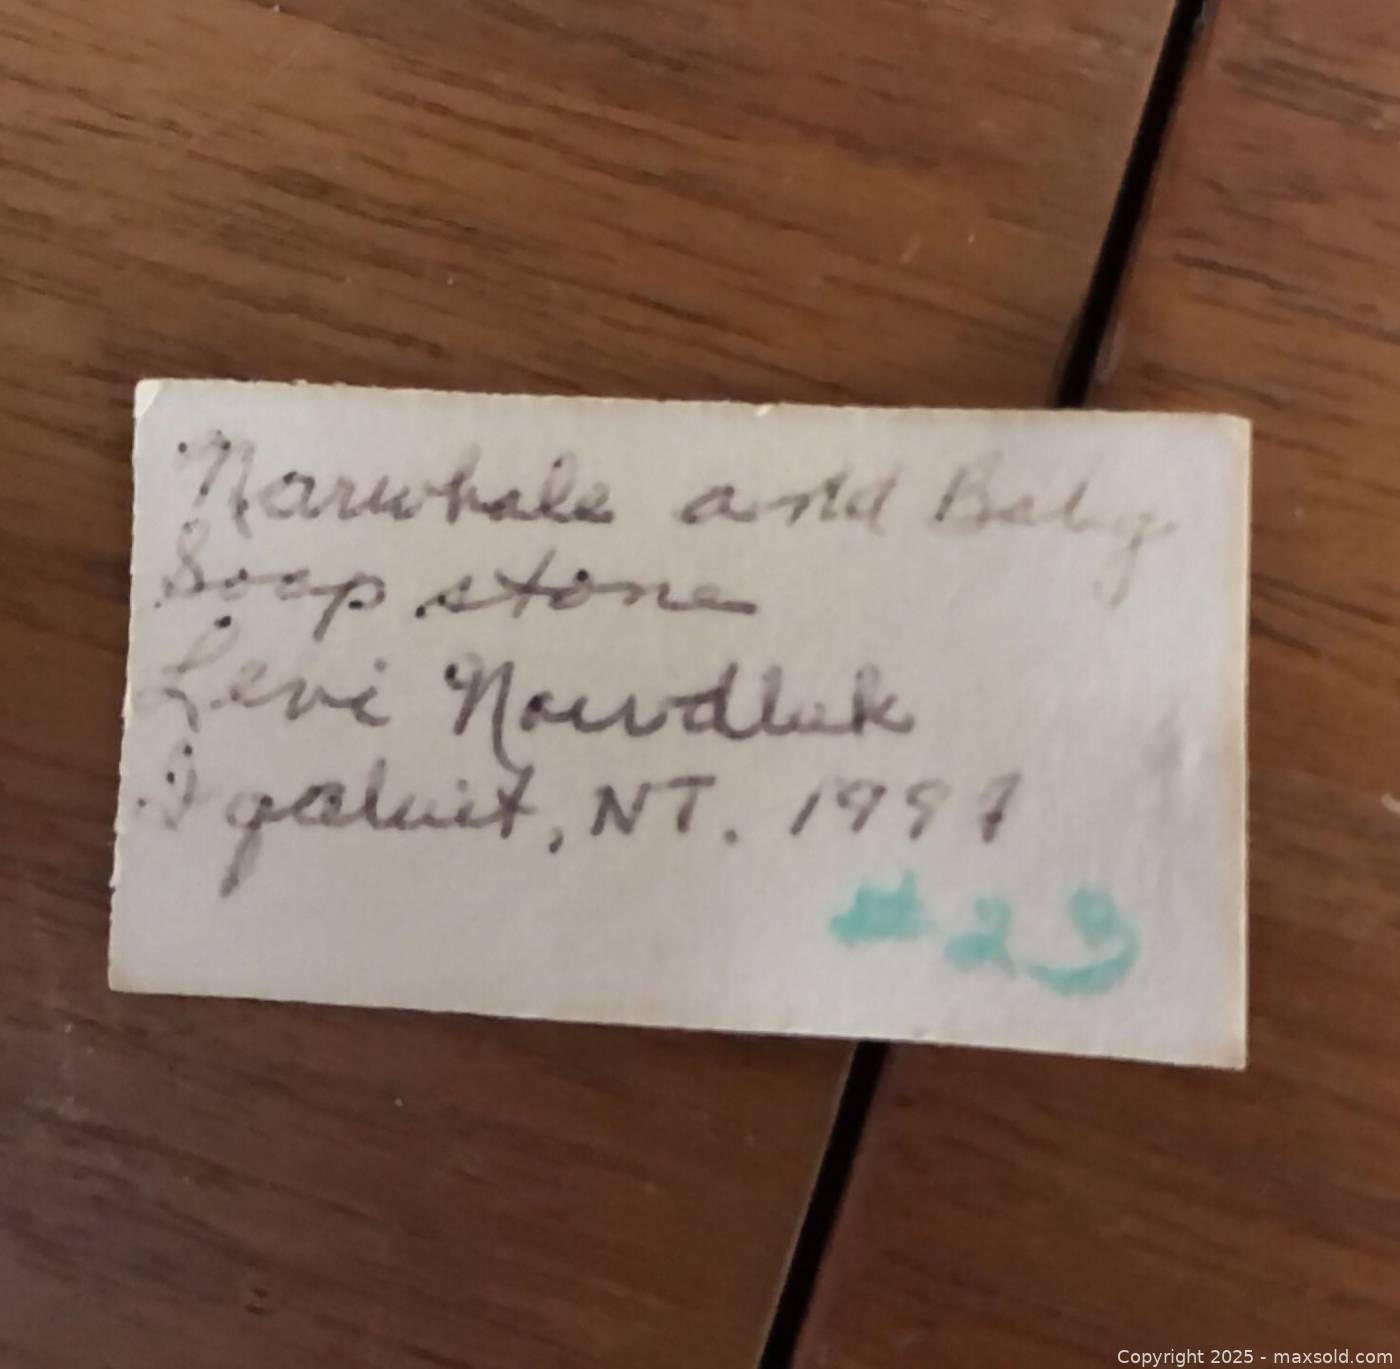 Narwhale and Baby
Soap stone
Levi Nowdluk
Iqaluit, NT. 1997
#23
Copyright 2025 - maxsold.com